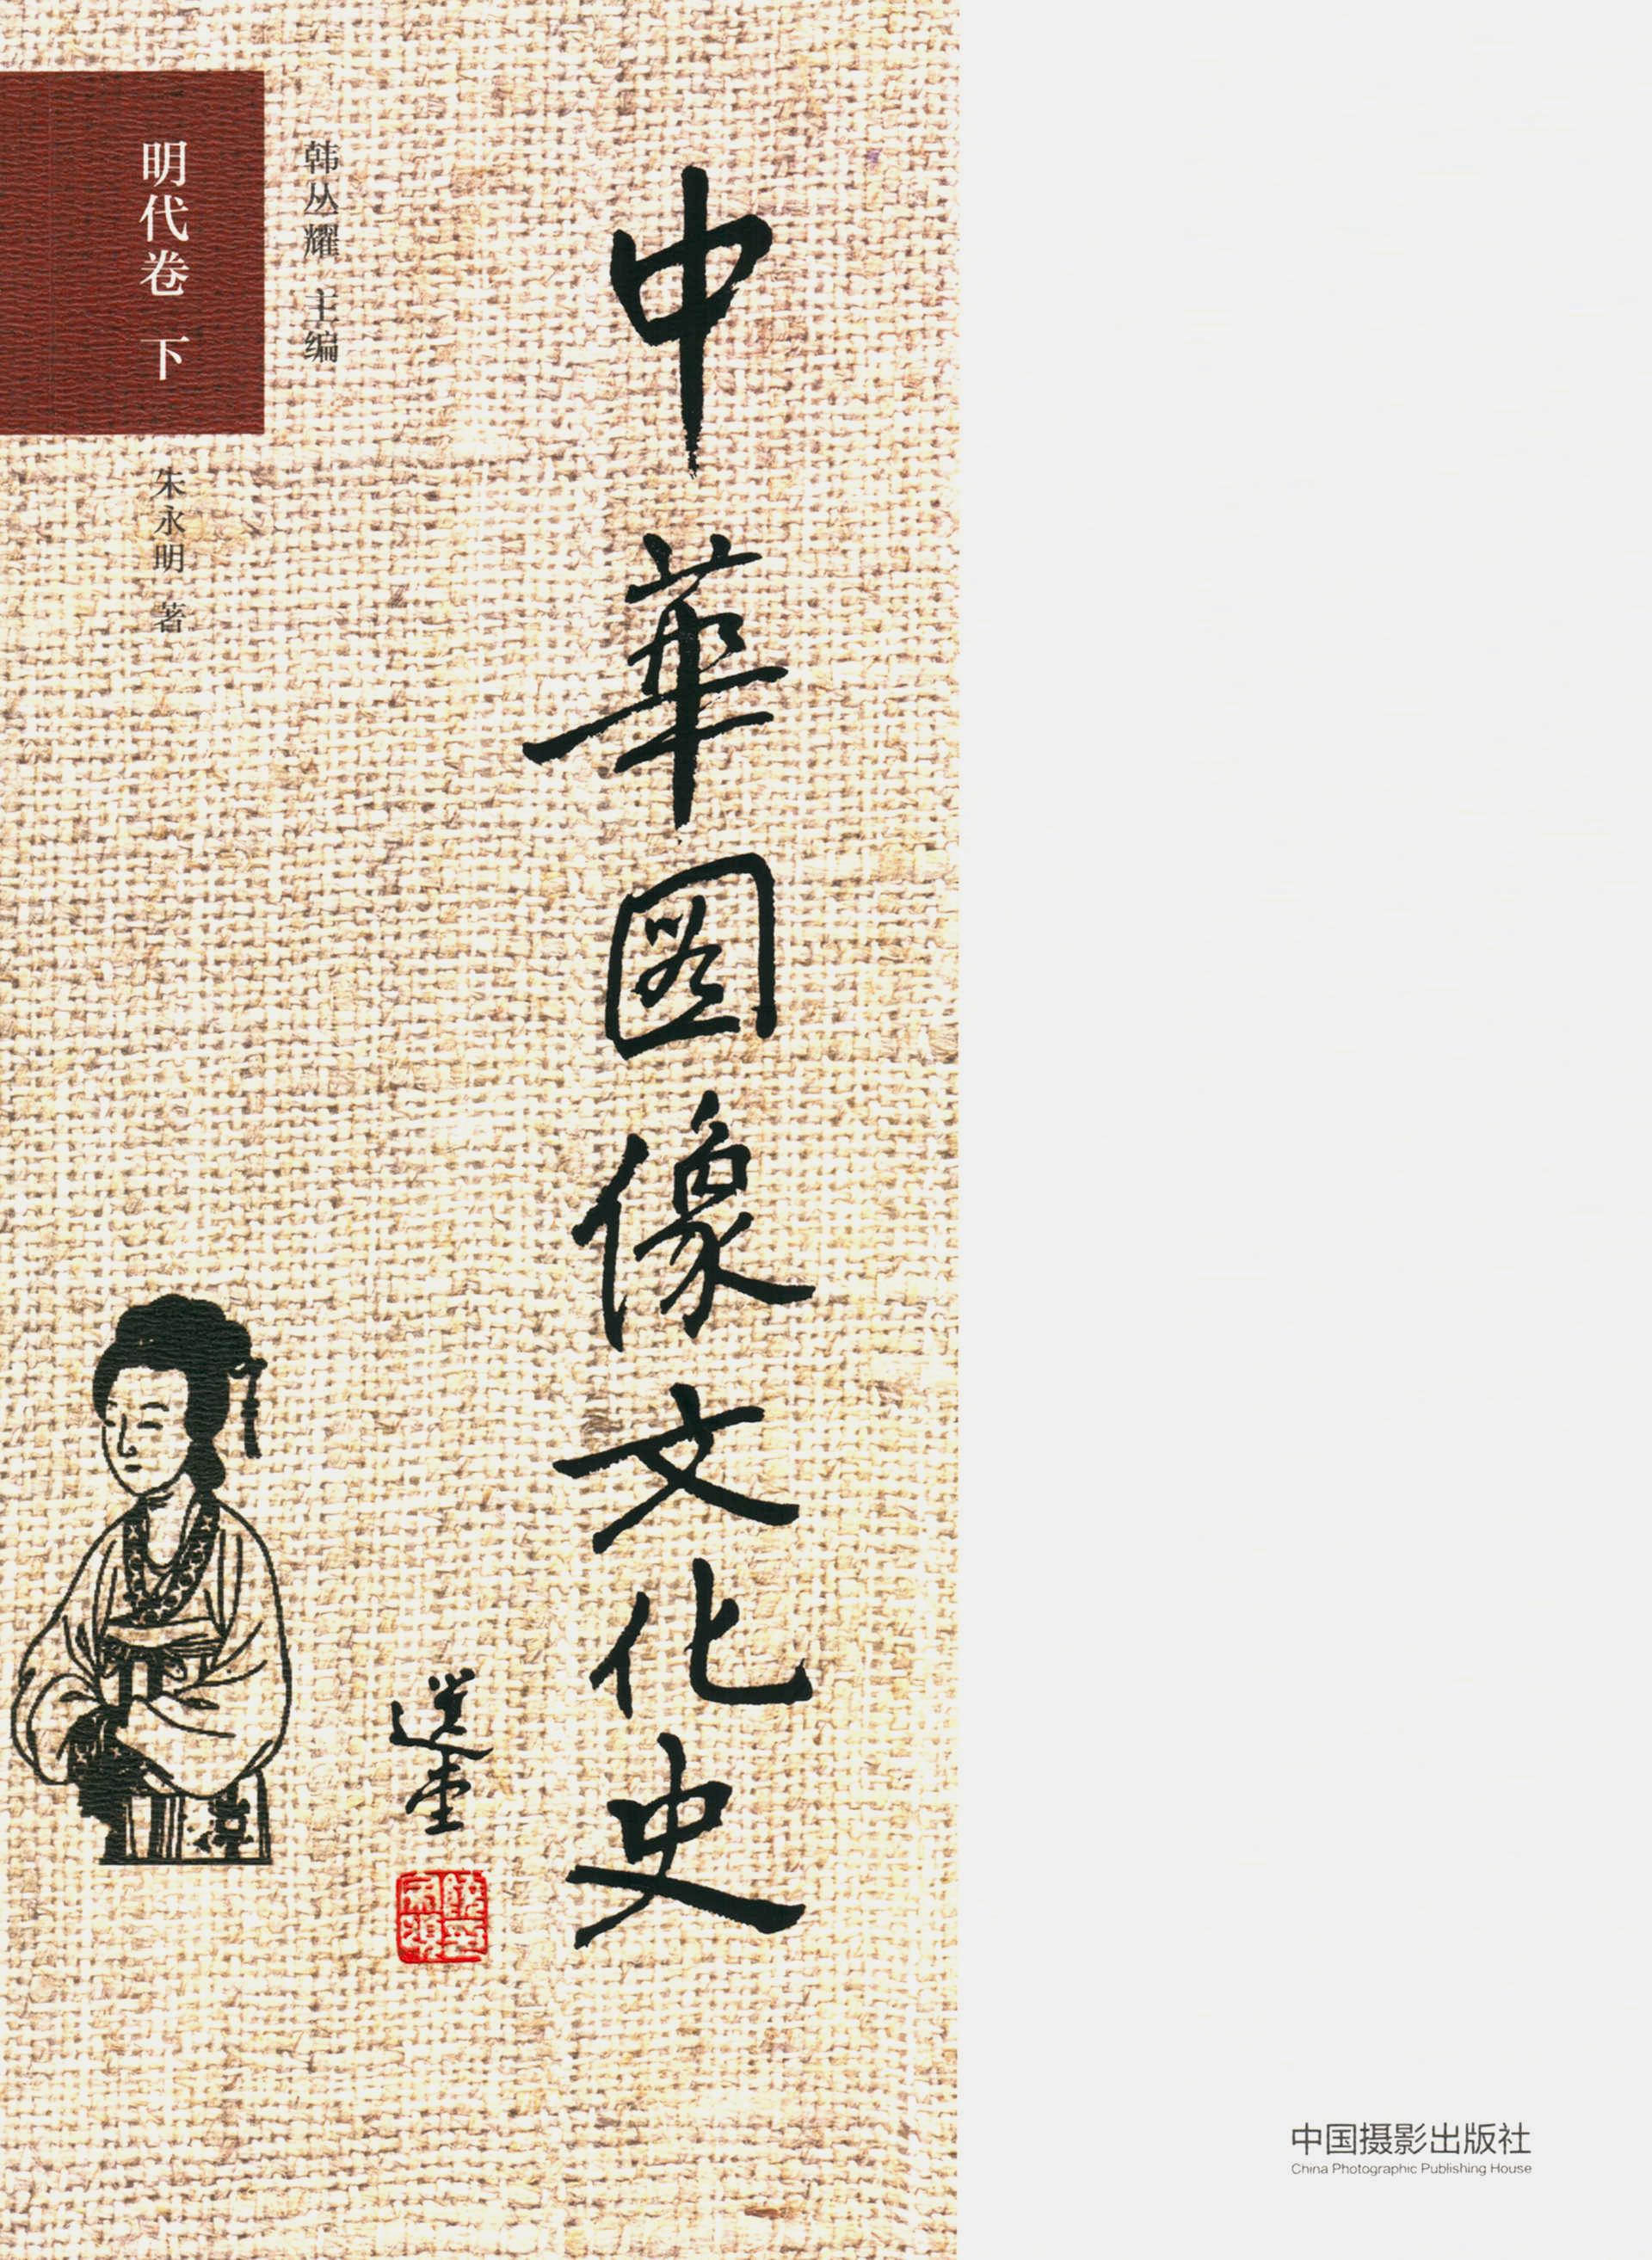 中華図像文化史
選堂
韩丛耀 主编
明代卷 下
朱永明 著
中国摄影出版社
China Photographic Publishing House